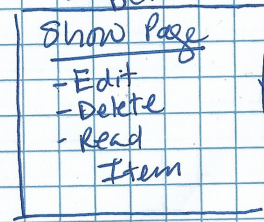 Show Page
- Edit
- Delete
- Read
Item